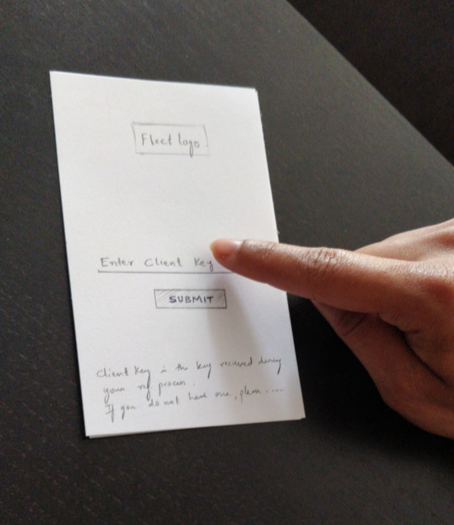 Fleet logo
Enter Client Key
SUBMIT
Client Key is the key received during
your reg process.
If you do not have one, please ....